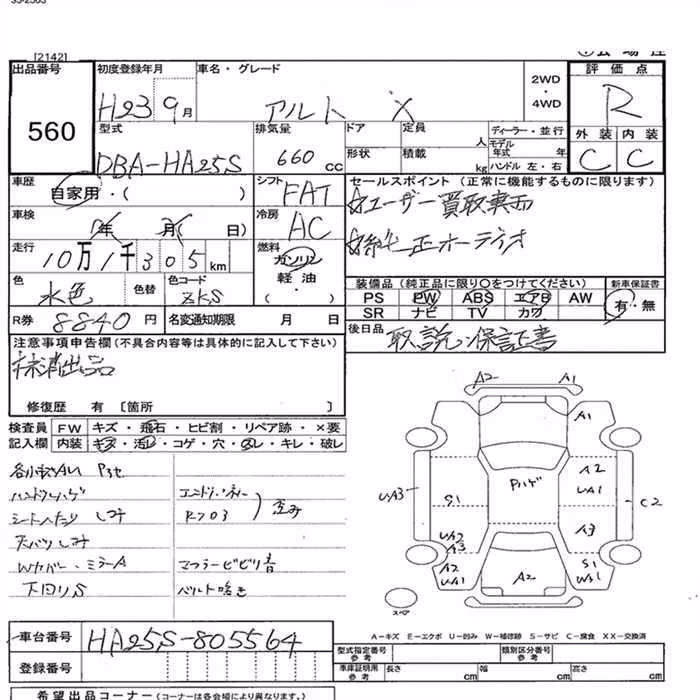 [2142]
出品番号
560
初度登録年月
H23 9月
車名・グレード
アルト X
2WD
・
4WD
評価点
R
外装 内装
C C
型式
DBA-HA25S
排気量
660 cc
ドア
形状
定員
人
積載
kg
ディーラー・並行
モデル年式 年
ハンドル 左・右
車歴
自家用・( )
シフト
FAT
車検
年 月( 日)
冷房
AC
走行
10万1千305km
燃料
ガソリン
軽油
・
( )
色
水色
色替
色コード
ZKS
R券 8840円
名変通知期限 月 日
セールスポイント (正常に機能するものに限ります)
☆ユーザー買取車両
☆純正オーディオ
装備品 (純正品に限り○をつけてください)
PS PW ABS エアB AW
SR ナビ TV カワ
新車保証書
有・無
後日品
取説、保証書
注意事項申告欄 (不具合内容等は具体的に記入して下さい)
抹消出品
修復歴 有 〔箇所 〕
検査員記入欄
FW キズ・飛石・ヒビ割・リペア跡・×要
内装 キズ・汚レ・コゲ・穴・スレ・キレ・破レ
ハンドルハゲ
シートヘタリ シミ
天バリシミ
Wカバー・ミラーA
下回りS
歪み
マフラービビリ音
ベルト鳴き
A2 A1
A1
A2
UA1
Pハゲ
UA3
S1
C2
A3
UA2
A3
A2
UA1
A2
S1
WA1
スペア
A−キズ E−エクボ U−凹み W−補修跡 S−サビ C−腐食 XX−交換済
車台番号
HA25S-805564
登録番号
型式指定番号
参考
類別区分番号
参考
車庫証明用
参考
長さ cm
幅 cm
高さ cm
希望出品コーナー (コーナーは各会場により異なります。)